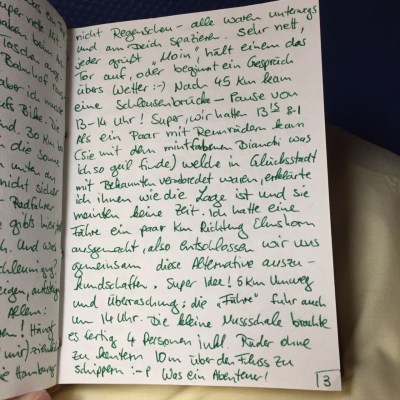 nicht Regenscheu - alle waren unterwegs
und am Deich spazieren. Sehr nett,
jeder grüßt "Moin", hält einem das
Tor auf, oder beginnt ein Gespräch
übers Wetter :-) Nach 45 km kam
eine Schleusenbrücke - Pause von
13-14 Uhr! Super, wir hatten 13:15 8-)
Als ein Paar mit Rennrädern kam
(Sie mit dem mintfarbenen Bianchi was
ich so geil finde) welche in Glückstadt
mit Bekannten verabredet waren, erklärte
ich ihnen wie die Lage ist und sie
meinten keine Zeit. Ich hatte eine
Fähre ein paar km Richtung Elmshorn
ausgemacht, also entschlossen wir uns
gemeinsam diese Alternative auszu-
kundschaften. Super Idee! 6 km Umweg
und Überraschung: die "Fähre" fuhr auch
um 14 Uhr. Die kleine Nussschale brachte
es fertig 4 Personen inkl. Räder ohne
zu kentern 10m über den Fluss zu
schippern :-P Was ein Abenteuer!
3